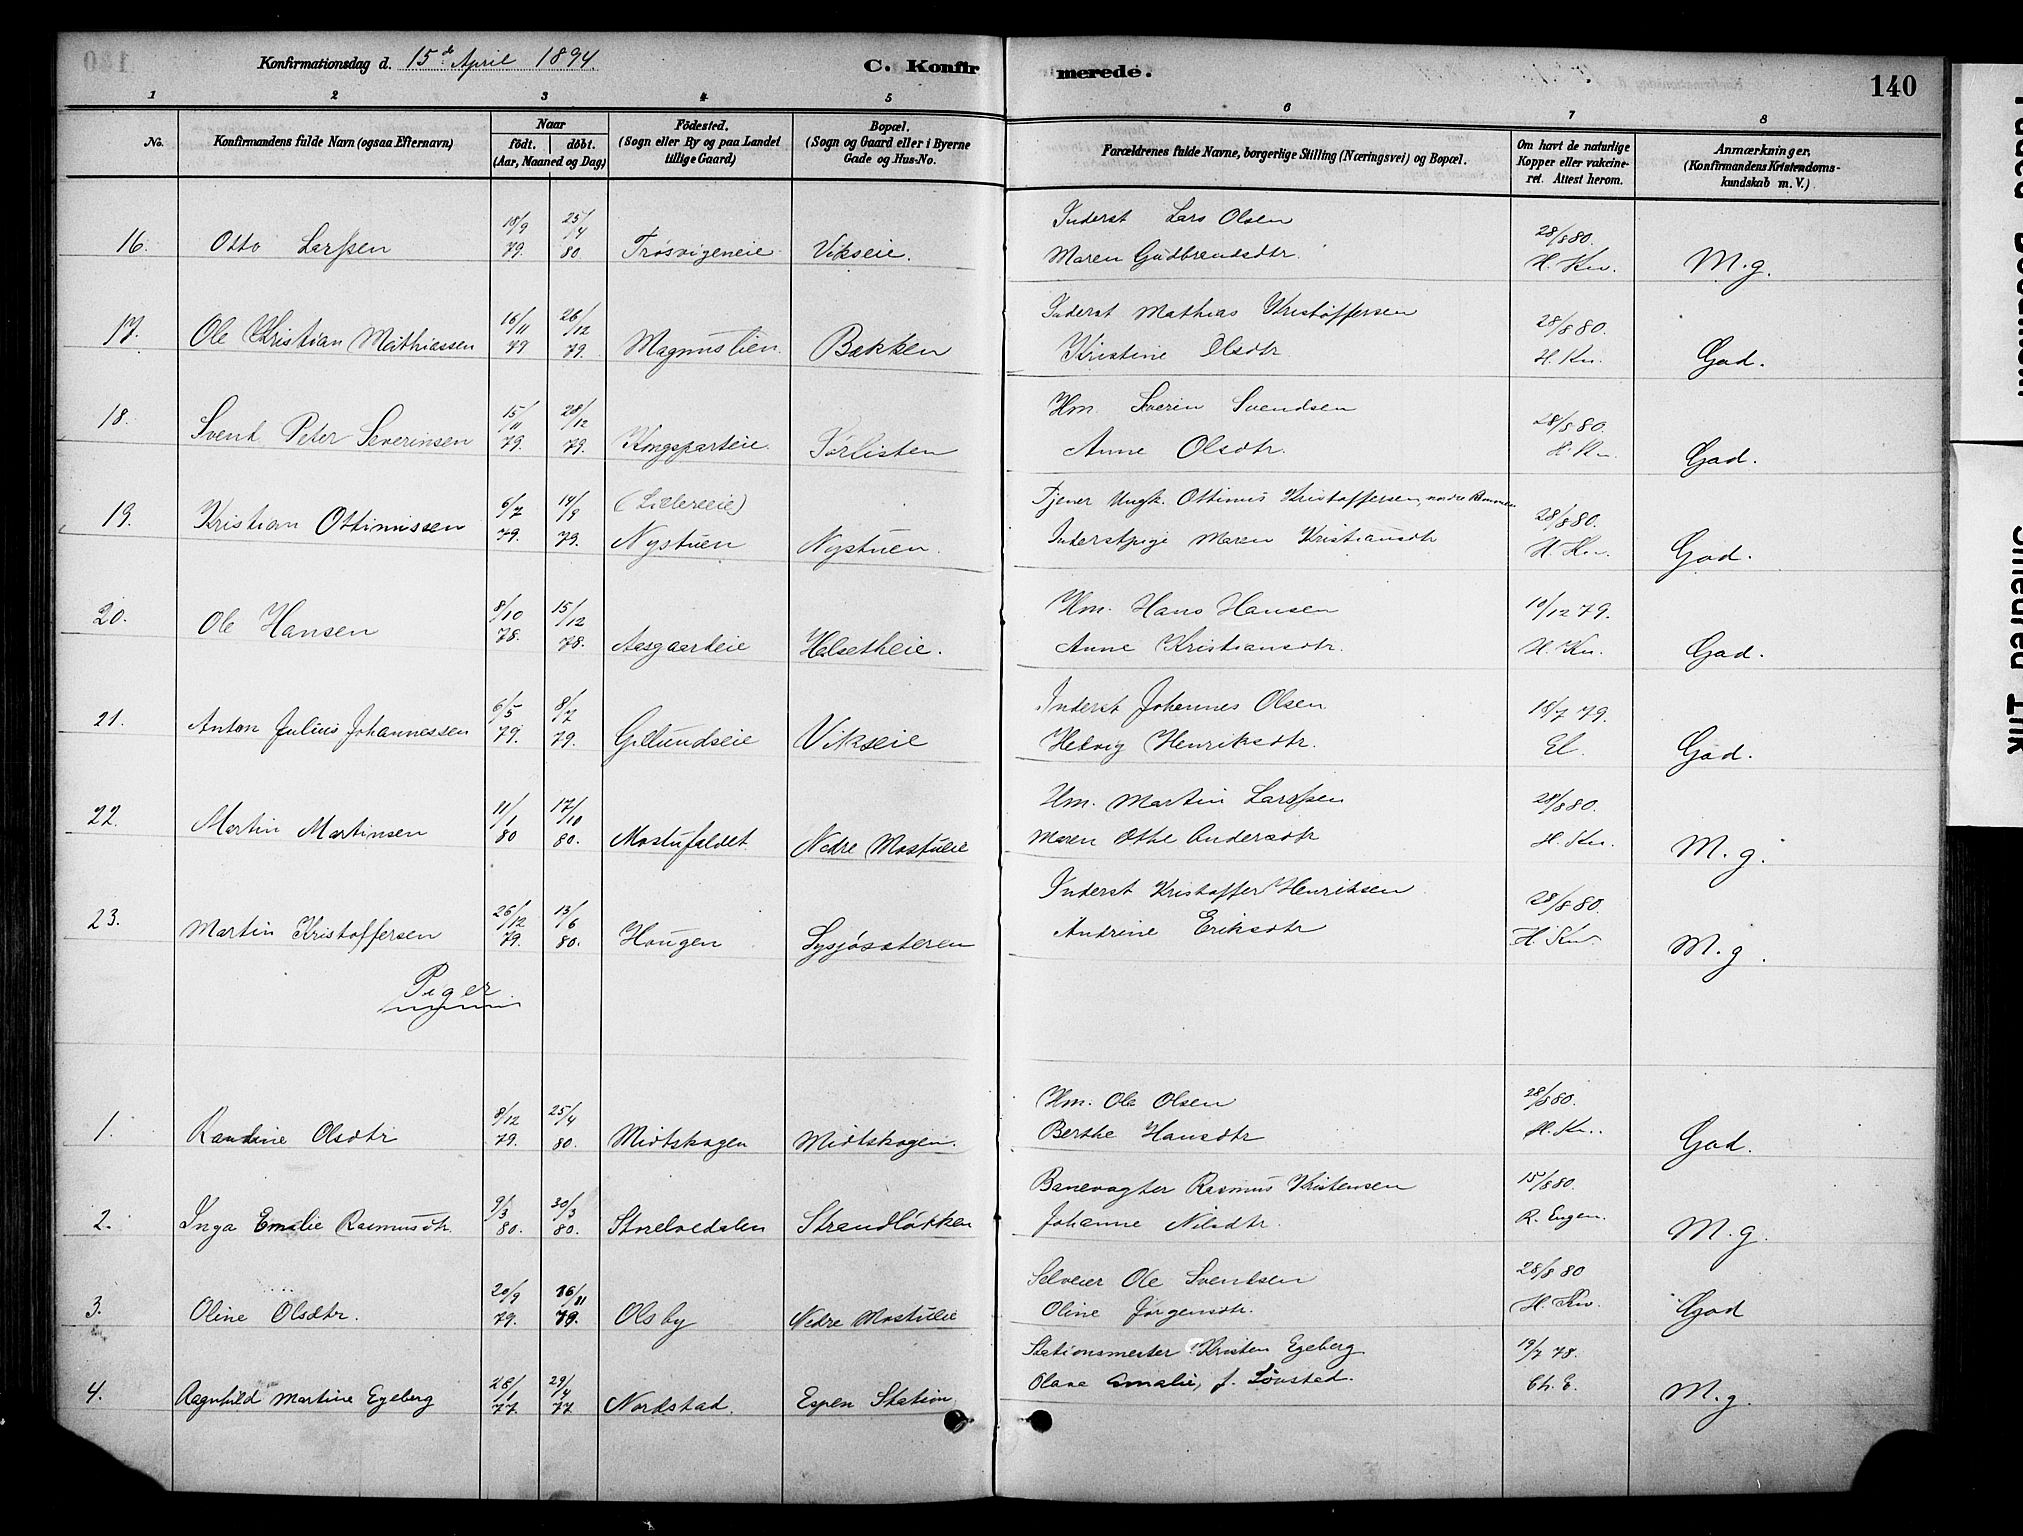 Konfirmationsdag d. 15de April 1894
C. Konfirmerede.
140
1 2 3 4 5 6 7 8
No.
Konfirmandens fulde Navn (ogsaa Efternavn)
Naar
födt. döbt.
(Aar, Maaned og Dag)
Födested.
(Sogn eller By og paa Landet
tillige Gaard)
Bopæl.
(Sogn og Gaard eller i Byerne
Gade og Hus-No.
Forældrenes fulde Navne, borgerlige Stilling (Næringsvei) og Bopæl.
Om havt de naturlige
Kopper eller vakcine-
ret. Attest herom.
Anmærkninger,
(Konfirmandens Kristendoms-
kundskab m. V.)
16. Otto Larssen 18/9 79. 25/4 80. Trøsvigeneie Vikseie.
Inderst Lars Olsen
Maren Gudbrandsdtr.
28/8 80.
H. Kn. M.g.
17. Ole Kristian Mathiassen 16/11 79 26/12 79. Magnuslien. Bakken
Inderst Mathias Kristoffersen
Kristine Olsdtr.
28/8 80.
H. Kn. God.
18. Svend Peter Severinsen 15/11 79. 28/12 79. Kongsparteie. Sørlisten
Hm. Severin Svendsen
Anne Olsdtr.
28/8 80.
H. Kn. God.
19. Kristian Ottinussen 6/7 79. 14/9 79. Nystuen Nystuen.
Tjener Ungk. Ottinus Kristoffersen, nordre
Inderstpige Maren Kristiansdtr
28/8 80.
H. Kn. God.
20. Ole Hansen 8/10 78. 15/12 78. Aasgaardeie Helsetheie.
Hm. Hans Hansen
Anne Kristiansdtr.
10/12 79.
H. Kn. God.
21. Anton Julius Johannessen 6/5 79. 8/7 79. Gillundseie Vikseie
Inderst Johannes Olsen
Hedvig Henriksdtr.
18/7 79.
El. God.
22. Martin Martinsen 11/1 80 17/10 80. Mostufaldet. Nedre Mostueie
Hm. Martin Larssen
Maren Othe Andersdtr
28/8 80.
H. Kn. M.g.
23. Martin Kristoffersen 26/12 79. 13/6 80. Haugen Sysjøsæteren
Inderst Kristoffer Henriksen
Andrine Eriksdtr
28/8 80.
H. Kn. M.g.
Piger
1. Randine Olsdtr 8/12 79. 25/4 80. Midtskogen Midtskogen.
Hm. Ole Olsen
Berthe Hansdtr
28/8 80.
H. Kn. God.
2. Inga Emalie Rasmusdtr. 9/3 80. 30/3 80. Storelvedalen Strandløkken
Banevogter Rasmus Kristensen
Johanne Nilsdtr.
15/8 80.
R. Engen. M.g.
3. Oline Olsdtr. 20/9 79. 16/11 79. Olsby Nedre Mostueie
Selveier Ole Svendsen
Oline Jørgensdtr.
28/8 80
H. Kn. God
4. Ragnhild Martine Egeberg 28/1 77. 29/4 77 Nordstad. Espen Station
Stationsmester Kristen Egeberg
Olave Amalie, f. Lønstad.
19/7 78.
Ch. E. M.g.